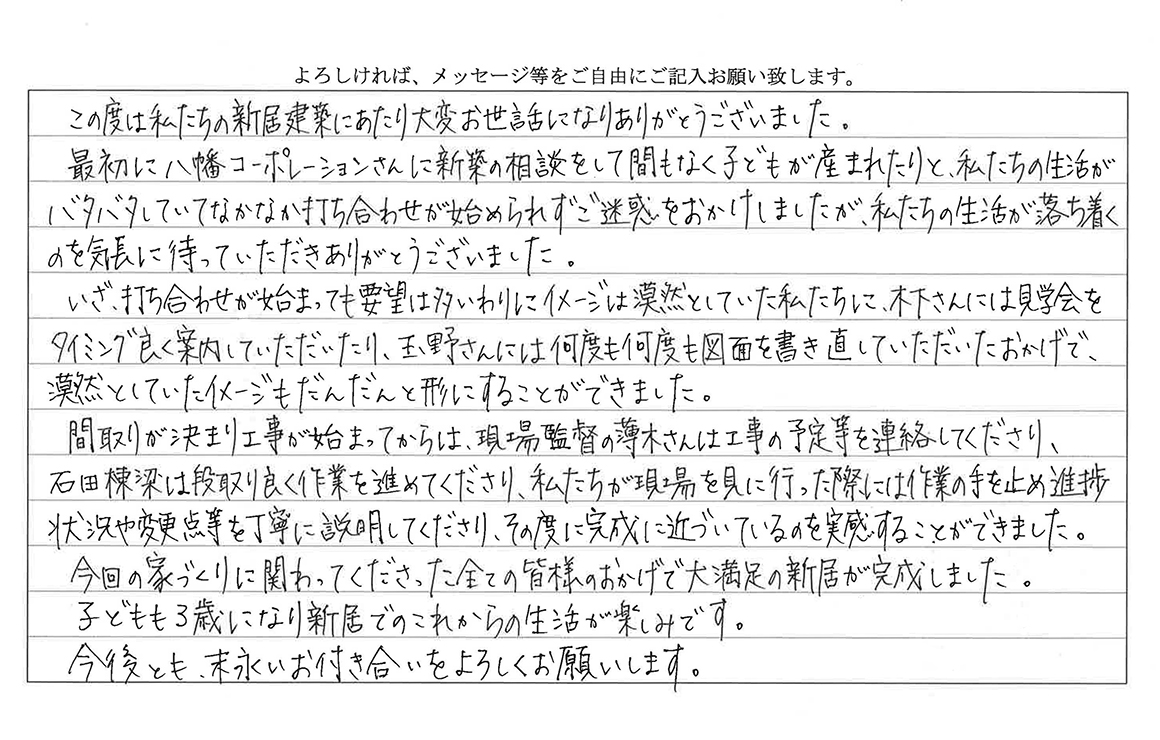 よろしければ、メッセージ等をご自由にご記入お願い致します。
この度は私たちの新居建築にあたり大変お世話になりありがとうございました。
最初に八幡コーポレーションさんに新築の相談をして間もなく子どもが産まれたりと、私たちの生活が
バタバタしていてなかなか打ち合わせが始められずご迷惑をおかけしましたが、私たちの生活が落ち着く
のを気長に待っていただきありがとうございました。
いざ、打ち合わせが始まっても要望は多いわりにイメージは漠然としていた私たちに、木下さんには見学会を
タイミング良く案内していただいたり、玉野さんには何度も何度も図面を書き直していただいたおかげで、
漠然としていたイメージもだんだんと形にすることができました。
間取りが決まり工事が始まってからは、現場監督の薄木さんは工事の予定等を連絡してくださり、
石田棟梁は段取り良く作業を進めてくださり、私たちが現場を見に行った際には作業の手を止め進捗
状況や変更点等を丁寧に説明してくださり、その度に完成に近づいているのを実感することができました。
今回の家づくりに関わってくださった全ての皆様のおかげで大満足の新居が完成しました。
子どもも3歳になり新居でのこれからの生活が楽しみです。
今後とも、末永いお付き合いをよろしくお願いします。